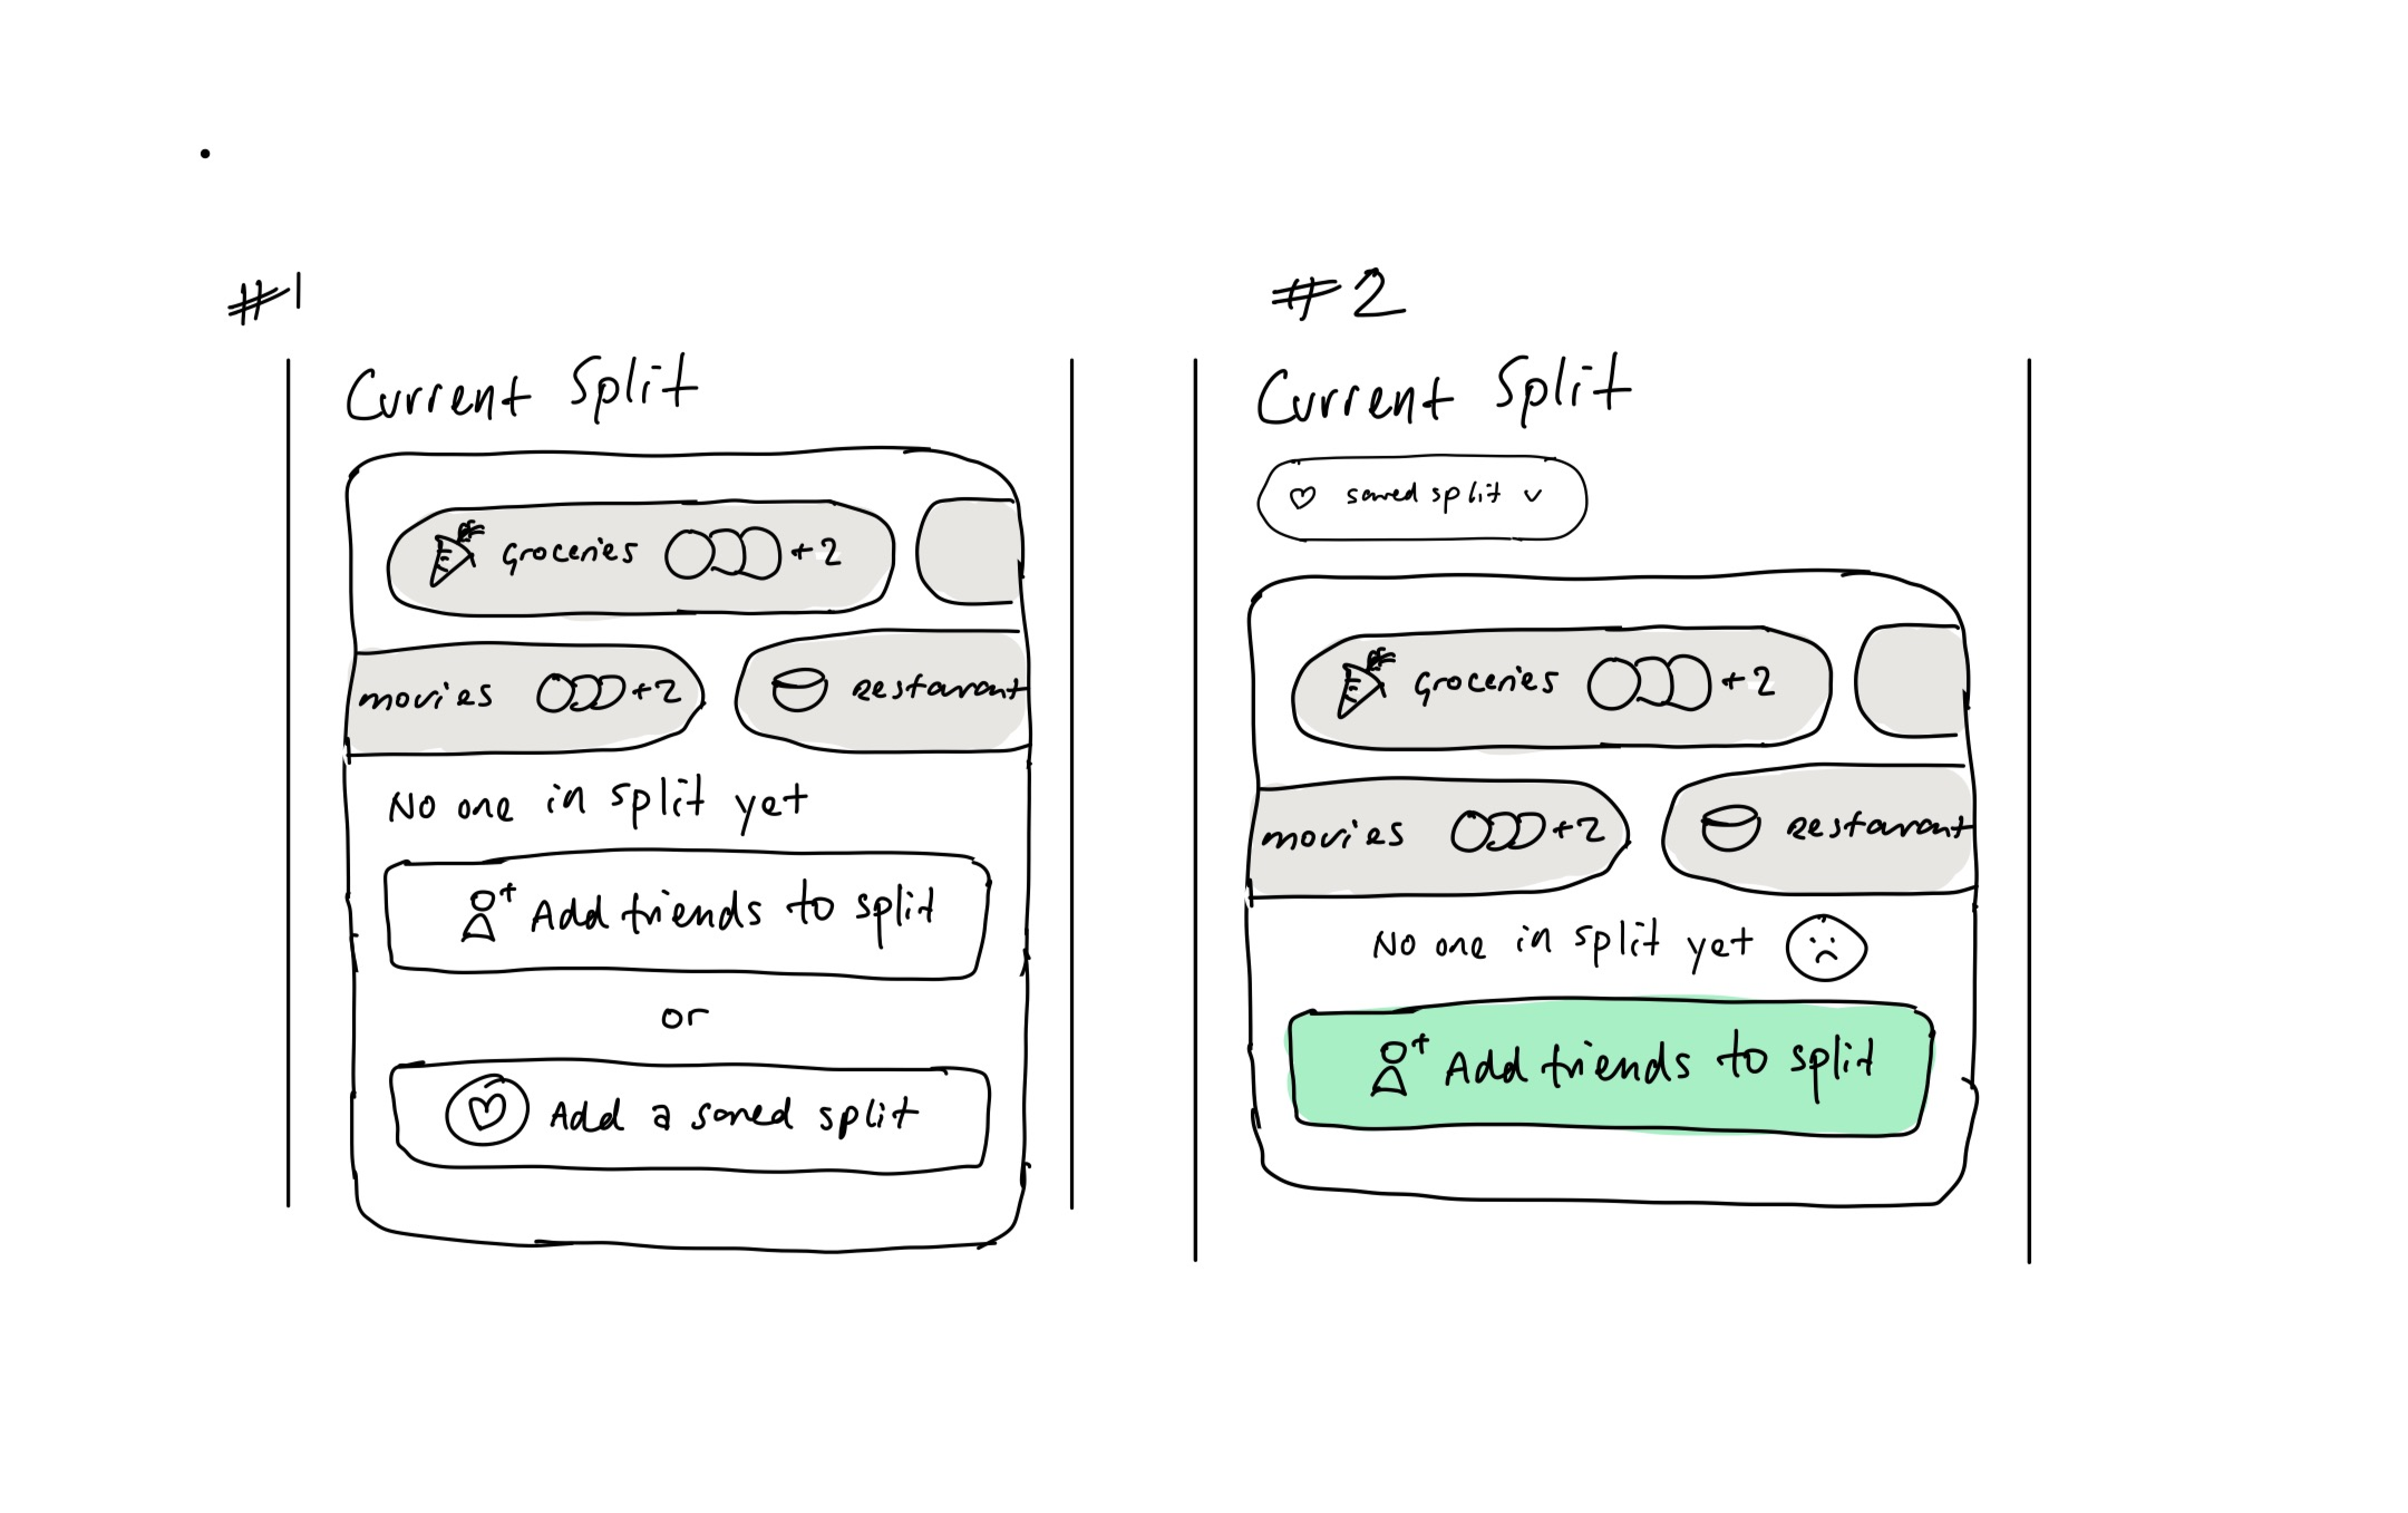 #1
Current Split
groceries +2
movies +2 restaurant
No one in split yet
Add friends to split
or
Add a saved split
#2
Current Split
saved split
groceries +2
movies +2 restaurant
No one in split yet
Add friends to split